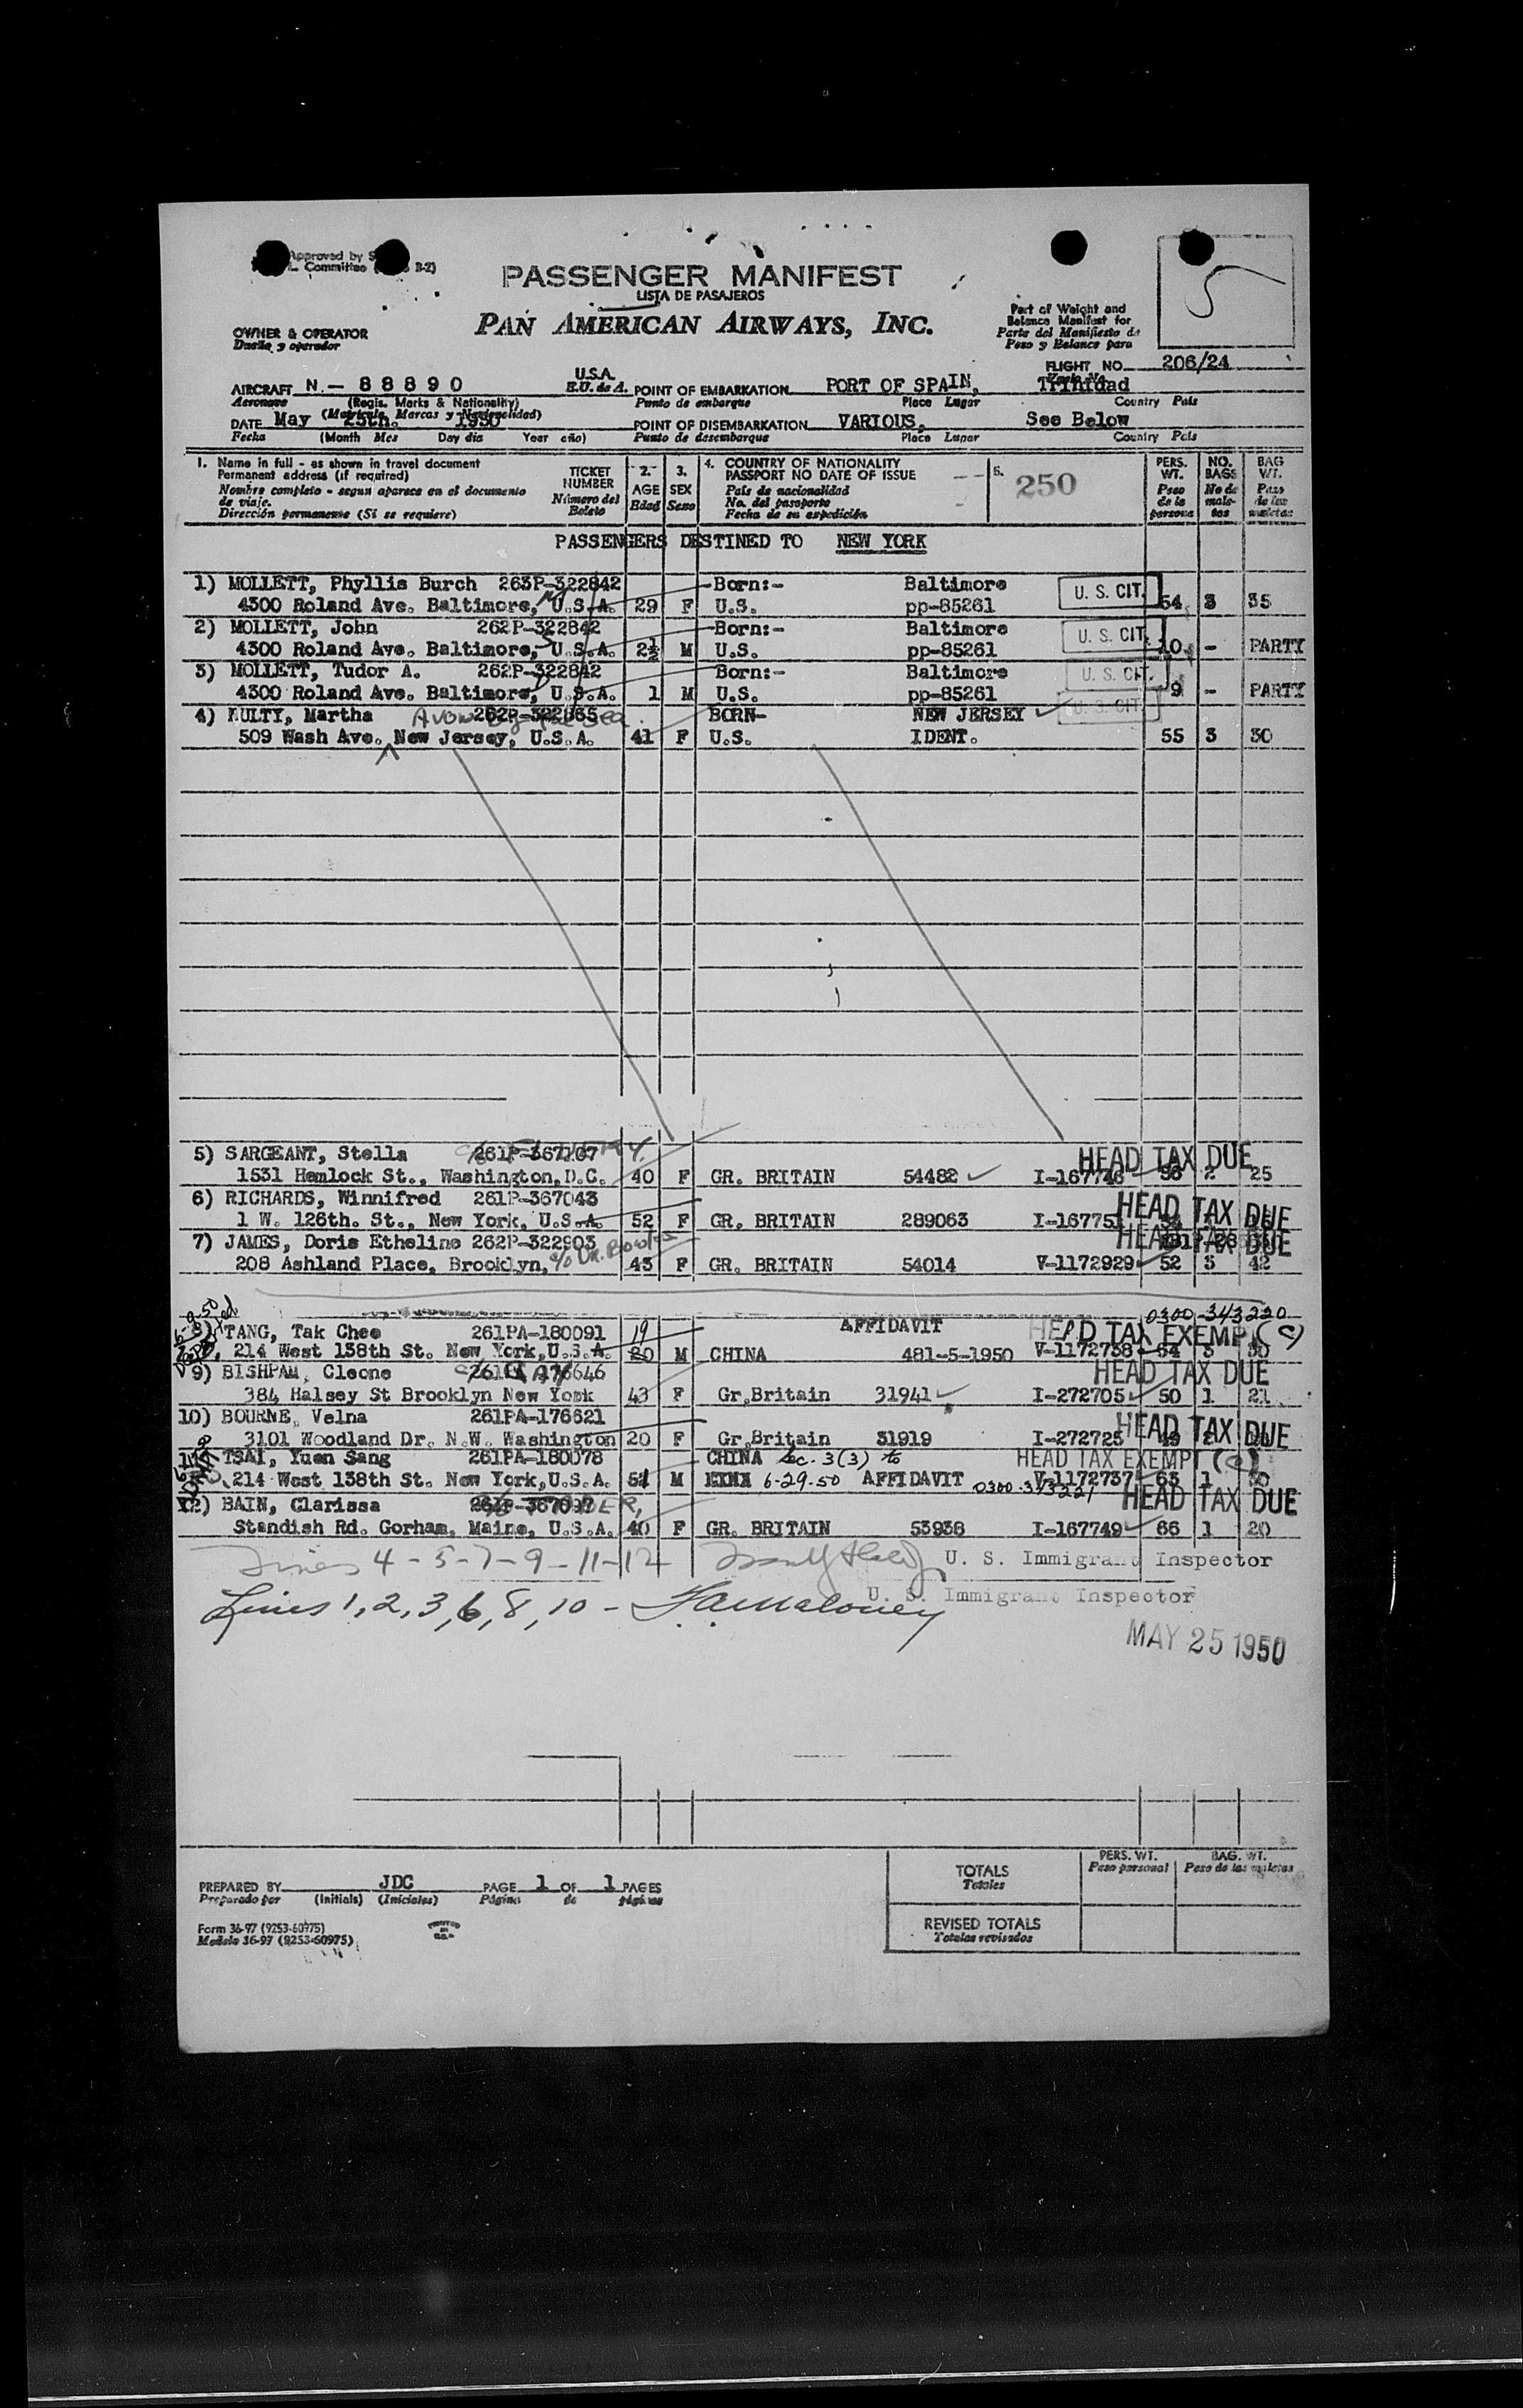 Approved by
Committee B-2)
PASSENGER MANIFEST
LISTA DE PASAJEROS
PAN AMERICAN AIRWAYS, INC.
OWNER & OPERATOR
Dueño y operador
Part of Weight and
Balance Manifest for
Parte del Manifiesto de
Peso y Balance para
5
FLIGHT NO. 206/24
AIRCRAFT N - 88890 U.S.A. POINT OF EMBARKATION PORT OF SPAIN, Trinidad
Aeronave (Regis. Marks & Nationality) E.U. de A. Punto de embarque Place Lugar Country País
(Matricula, Marcas y Nacionalidad)
DATE May 25th. 1950 POINT OF DISEMBARKATION VARIOUS, See Below
Fecha (Month Mes Day dia Year año) Punto de desembarque Place Lugar Country País
1. Name in full - as shown in travel document
Permanent address (if required)
Nombre completo - segun aparece en el documento
de viaje.
Dirección permanente (Si se requiere)
TICKET
NUMBER
Número del
Boleto
2.
AGE
Edad
3.
SEX
Sexo
4. COUNTRY OF NATIONALITY
PASSPORT NO DATE OF ISSUE
País de nacionalidad
No. del pasaporte
Fecha de su expedición
5.
250
PERS.
WT.
Peso
de la
persona
NO.
BAGS
No de
male-
tas
BAG
WT.
Peso
de las
maletas
PASSENGERS DESTINED TO NEW YORK
1) MOLLETT, Phyllis Burch 263P-322842 Born:- Baltimore U. S. CIT.
4300 Roland Ave. Baltimore, U.S.A. 29 F U.S. pp-85261 54 3 35
2) MOLLETT, John 262P-322842 Born:- Baltimore U. S. CIT.
4300 Roland Ave. Baltimore, U.S.A. 2½ M U.S. pp-85261 10 - PARTY
3) MOLLETT, Tudor A. 262P-322842 Born:- Baltimore U. S. CIT.
4300 Roland Ave. Baltimore, U.S.A. 1 M U.S. pp-85261 9 - PARTY
4) KULTY, Martha Avon by the Sea 262P-322865 BORN- NEW JERSEY U. S. CIT.
509 Wash Ave. New Jersey, U.S.A. 41 F U.S. IDENT. 55 3 30
5) SARGEANT, Stella 261P-367107 HEAD TAX DUE
1531 Hemlock St., Washington, D.C. 40 F GR. BRITAIN 54482 I-167746 56 2 25
6) RICHARDS, Winnifred 261P-367043 HEAD TAX DUE
1 W. 126th. St., New York, U.S.A. 52 F GR. BRITAIN 289063 I-167751
7) JAMES, Doris Etheline 262P-322903 HEAD TAX DUE
208 Ashland Place, Brooklyn, c/o Dr. Bowles 43 F GR. BRITAIN 54014 V-1172929 52 3 42
0300-343220
8) TANG, Tak Chee 261PA-180091 19 AFFIDAVIT HEAD TAX EXEMPT (C)
214 West 138th St. New York, U.S.A. 20 M CHINA 481-5-1950 V-1172738 54 3 30
9) BISHPAM, Cleone HEAD TAX DUE
384 Halsey St Brooklyn New York 43 F Gr,Britain 31941 I-272705 50 1 21
10) BOURNE, Velna 261PA-176621 HEAD TAX DUE
3101 Woodland Dr. N.W. Washington 20 F Gr,Britain 31919 I-272725
TSAI, Yuen Sang 261PA-180078 CHINA Sec. 3(3) to HEAD TAX EXEMPT (C)
214 West 138th St. New York, U.S.A. 51 M 6-29-50 AFFIDAVIT 0300-343221 V-1172737 63 1
12) BAIN, Clarissa HEAD TAX DUE
Standish Rd. Gorham, Maine, U.S.A. 40 F GR. BRITAIN 53938 I-167749 66 1 20
Lines 4-5-7-9-11-12 U. S. Immigrant Inspector
Lines 1, 2, 3, 6, 8, 10 - F.A. Maloney U. S. Immigrant Inspector
MAY 25 1950
PREPARED BY JDC PAGE 1 OF 1 PAGES
Preparado por (Initials) (Iniciales) Página de páginas
Form 36-97 (9253-60975)
Modelo 36-97 (9253-60975)
TOTALS
Totales
PERS. WT.
Peso personal
BAG. WT.
Peso de las maletas
REVISED TOTALS
Totales revisados